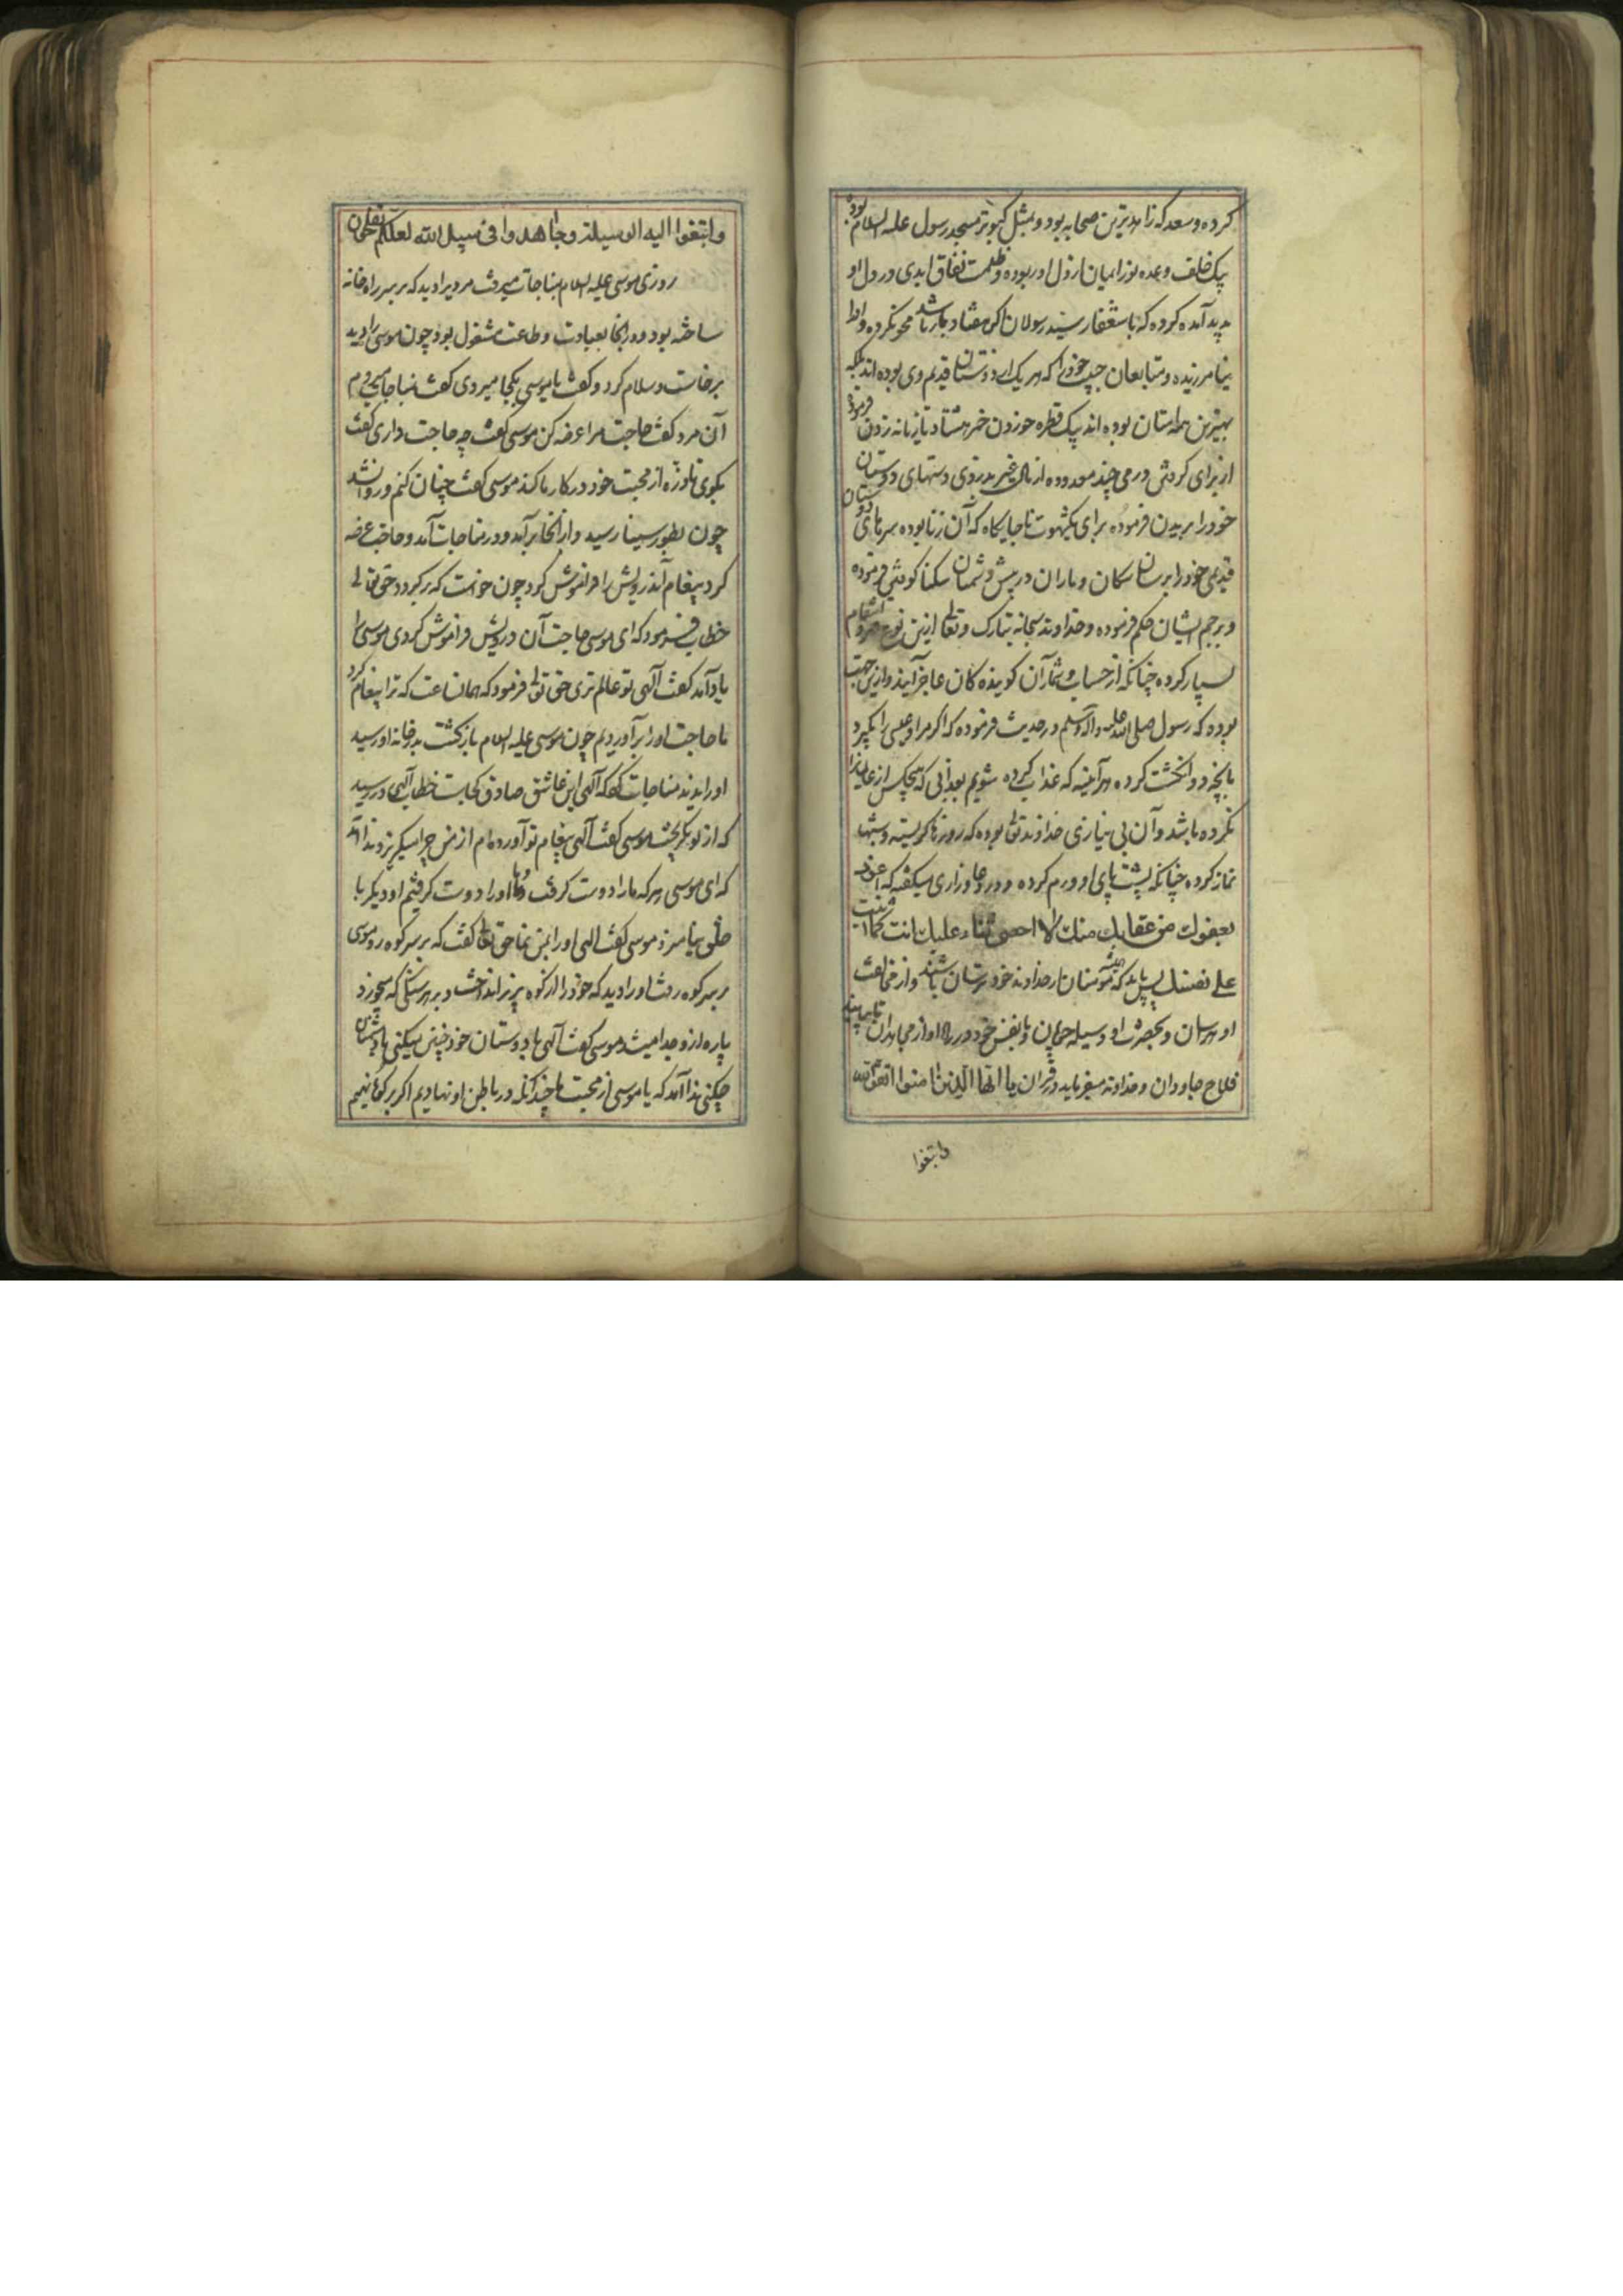 کرده و سعد که زاهدترین صحابه بود و بمثل کبوتر مسجد رسول علیه السلام بوده
بیک خلف وعده نور ایمان از دل او ربوده و ظلمت نفاق ابدی در دل او
پدید آمده کرده که باستغفار سید رسولان اگر هفتاد بار باشد محو نکرده و او را
نیامرزیده و متابعان حبیب خود را که هر یک از دوستان قدیم وی بوده اند بلکه
بهترین همه امتان بوده اند بیک قطره خوردن خمر هشتاد تازیانه زدن فرموده
از برای کردش درمی چند معدوده از مال غیر بدزدی دستهای دوستان
خود را بریدن فرموده برای یکشهوت ناجایکاه که آن زنا بوده سرهای دوستان
قدیمی خود را برسان سکان و ماران در پیش دشمنان سکنا کوشی فرموده
و برجم ایشان حکم فرموده و خداوند سبحانه تبارک و تعالی ازین نوع قهر و انتقام
بسیار کرده چنانکه از حساب و شمار آن کوینده کان عاجز آیند و ازین جهت
بوده که رسول صلی الله علیه و آله و سلم در حدیث فرموده که اکر مرا و عیسی را بکیرد
بانچه دو انکشت کرده هر آینه که عذاب کرده شویم بعذابی که هیچکس از عالمیان را
نکرده باشد و آن بی نیازی خداوند تعالی بوده که روزها کریسته و شبها
نماز کرده چنانکه پشت پای او ورم کرده و در دعا و زاری میکفته که اعوذ
بعفوك من عقابك منك لا احصی ثناء علیك انت كما اثنیت
علی نفسك پس باید که مؤمنان از خداوند خود ترسان باشند و از مخالفت
او هراسان و بحضرت او وسیله جویان و با نفس خود در راه او از مجاهدان تا بیابند
فلاح جاودان و خداوند میفرماید در قران یا ایها الذین امنوا اتقوا الله
وابتغوا
وابتغوا الیه الوسیلة وجاهدوا فی سبیل الله لعلکم تفلحون
روزی موسی علیه السلام بمناجات میرفت مردیرا دید که بر سر راه خانه
ساخته بود و در انجا بعبادت و طاعت مشغول بود چون موسی را دید
برخاست و سلام کرد و کفت یا موسی بکجا میروی کفت بمناجات میروم
آن مرد کفت حاجت مرا عرضه کن موسی کفت چه حاجت داری کفت
بکوی تا ذرّه از محبت خود در کار ما کند موسی کفت چنان کنم و روانه شد
چون بطور سینا رسید و از انجا برآمد و در مناجات آمد و حاجت عرضه
کرد پیغام آندرویش را فراموش کرد چون خواست که برکردد حق تعالی
خطاب فرمود که ای موسی حاجت آن درویش فراموش کردی موسی را
یاد آمد کفت آلهی تو عالم تری حق تعالی فرمود که همان ساعت که ترا پیغام کرد
ما حاجت او را برآوردیم چون موسی علیه السلام بازکشت بدر خانه او رسید
او را ندید مناجات کرد که آلهی این عاشق صادق کجاست خطاب آلهی در رسید
که از تو بکریخت موسی کفت آلهی پیغام تو آورده ام از من چرا میکریزد ندا آمد
که ای موسی هر که ما را دوست کرفت و ما او را دوست کرفتیم او دیکر با
خلق نیامیزد موسی کفت الهی او را بمن نما حق تعالی کفت که بر سر کوه رو موسی
بر سر کوه رفت او را دید که خود را از کوه بزیر انداخت و بر هر سنکی که میخورد
پاره از و جدا میشد موسی کفت آلهی با دوستان خود چنین میکنی با دشمنان
چکنی ندا آمد که یا موسی از محبت ما چندانکه در باطن او نهادیم اکر بر کوه نهیم